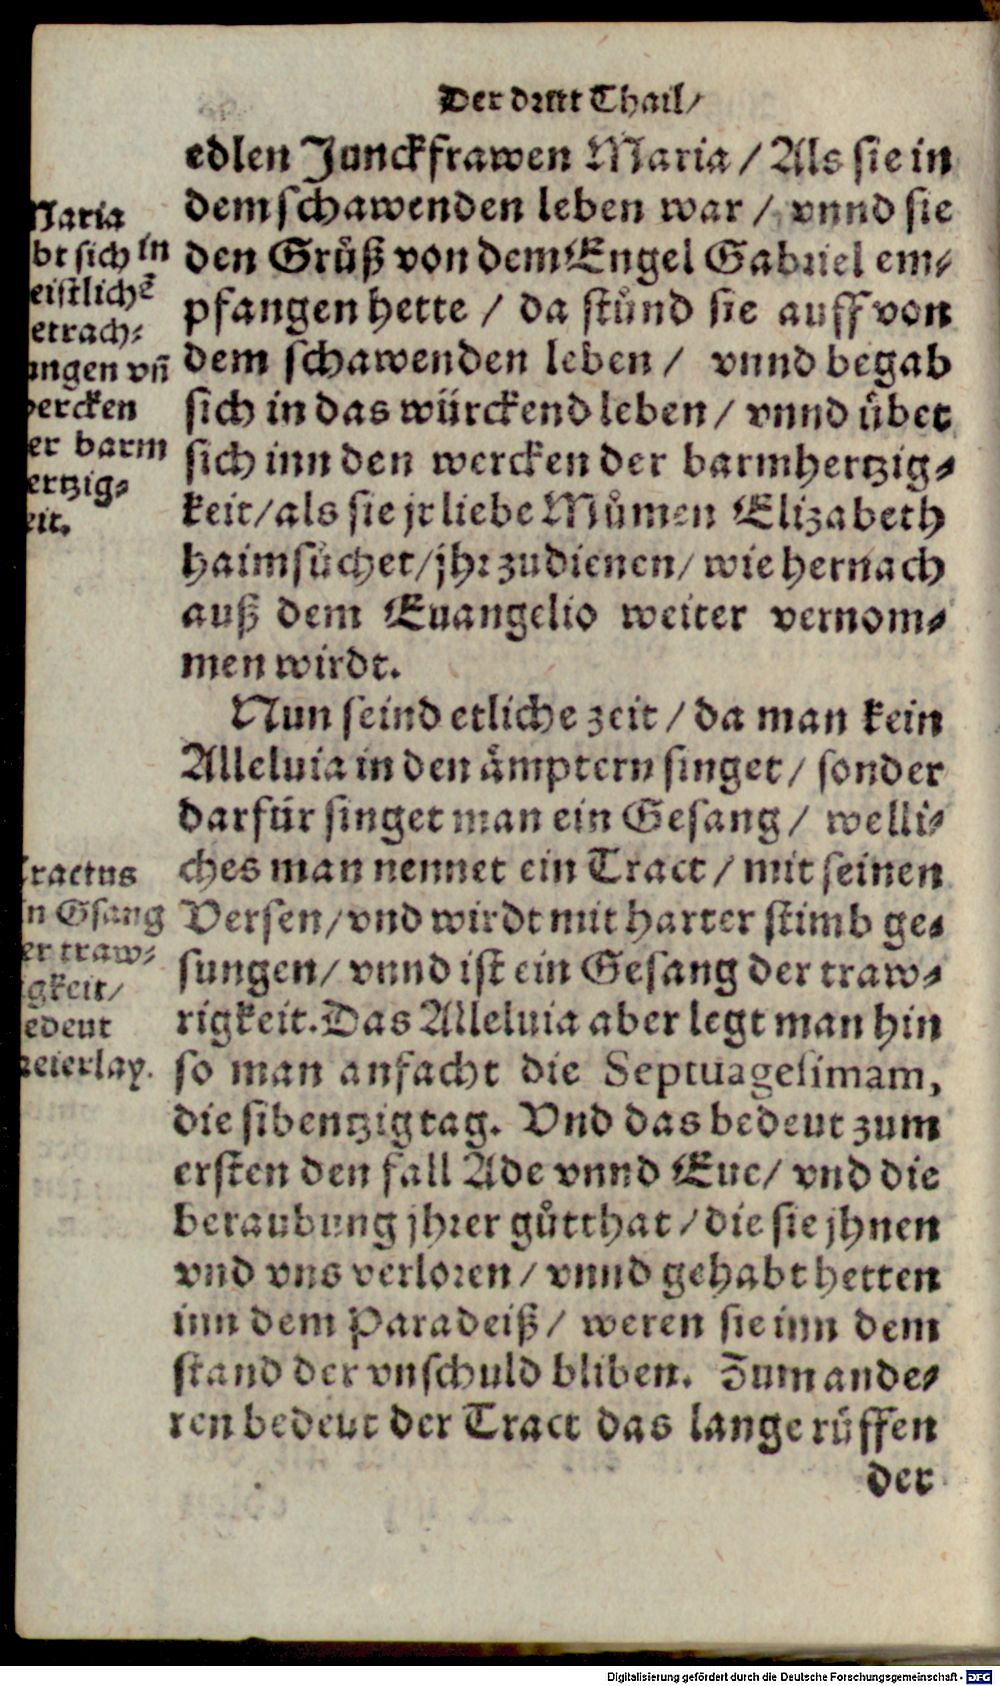 Der dritt Thail/
edlen Junckfrawen Maria / Als sie in
dem schawenden leben war / vnnd sie
den Grůß von dem Engel Gabriel em⸗
pfangen hette / da stůnd sie auff von
dem schawenden leben / vnnd begab
sich in das würckend leben / vnnd übet
sich inn den wercken der barmhertzig⸗
keit/ als sie jr liebe Můmen Elizabeth
haimsůchet/ jhr zudienen/ wie hernach
auß dem Euangelio weiter vernom⸗
men wirdt.
Nun seind etliche zeit / da man kein
Alleluia in den åmptern singet / sonder
darfür singet man ein Gesang / welli⸗
ches man nennet ein Tract / mit seinen
Versen/ vnd wirdt mit harter stimb ge⸗
sungen/ vnnd ist ein Gesang der traw⸗
rigkeit. Das Alleluia aber legt man hin
so man anfacht die Septuagesimam,
die sibentzig tag. Vnd das bedeut zum
ersten den fall Ade vnnd Eue/ vnd die
beraubung jhrer gůtthat / die sie jhnen
vnd vns verloren / vnnd gehabt hetten
inn dem Paradeiß / weren sie inn dem
stand der vnschuld bliben. Zum ande⸗
ren bedeut der Tract das lange růffen
der
Maria
bt sich in
eistlichē
etrach⸗
ungen vñ
wercken
er barm
ertzig⸗
eit.
Tractus
in Gsang
er traw⸗
igkeit/
edeut
zeierlay.
Digitalisierung gefördert durch die Deutsche Forschungsgemeinschaft - DFG